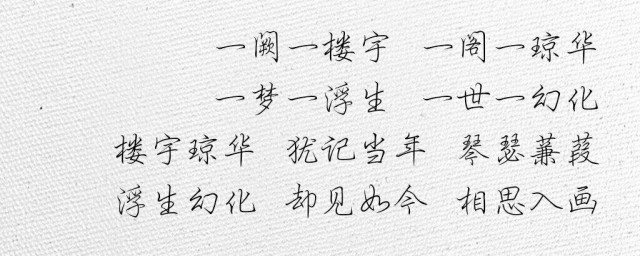 一阙一楼宇 一阁一琼华
一梦一浮生 一世一幻化
楼宇琼华 犹记当年 琴瑟蒹葭
浮生幻化 却见如今 相思入画